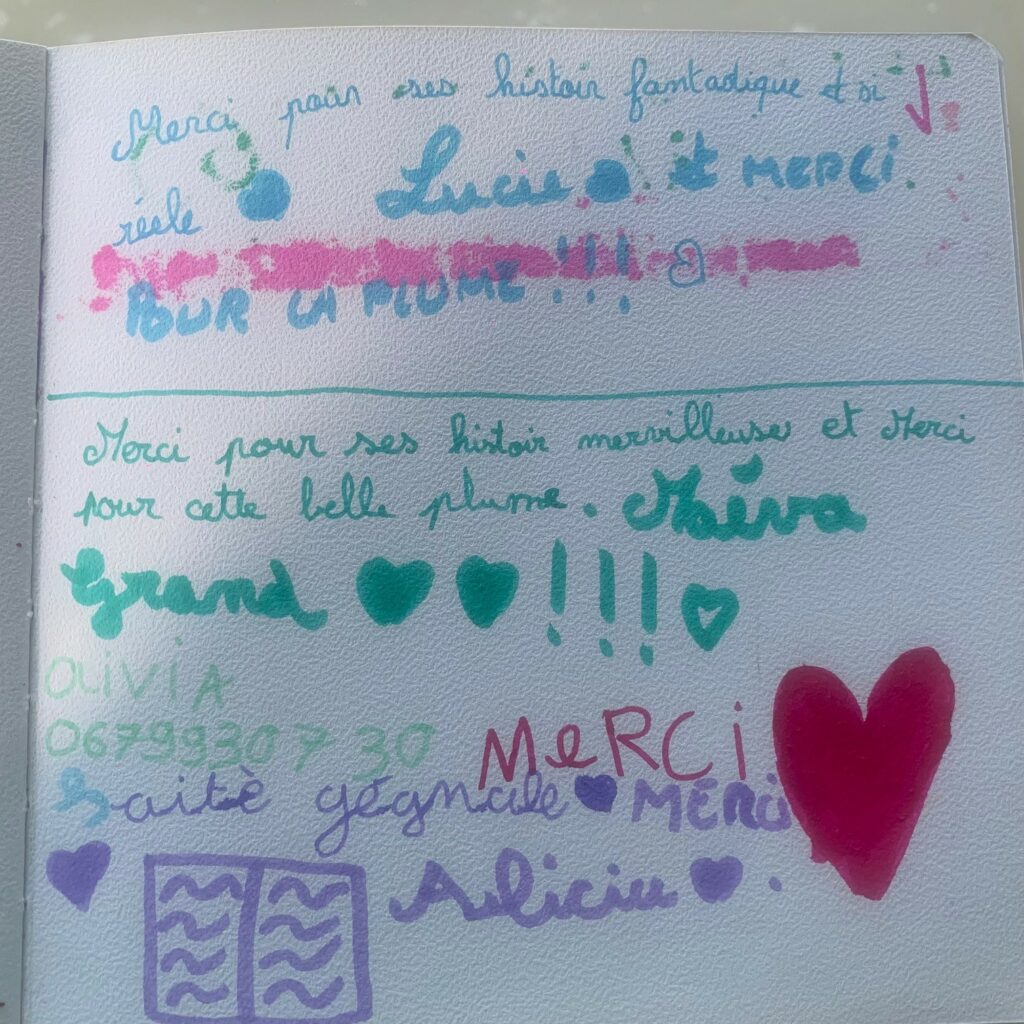 Merci pour ses histoir fantastique et si
réele Lucie et MERCI
POUR LA PLUME !!!
Merci pour ses histoir mervilleuse et Merci
pour cette belle plume. Maéva
Grand !!!
OLiViA
0679930730
MeRCi
saitè gégnale MERCi
Aliciu